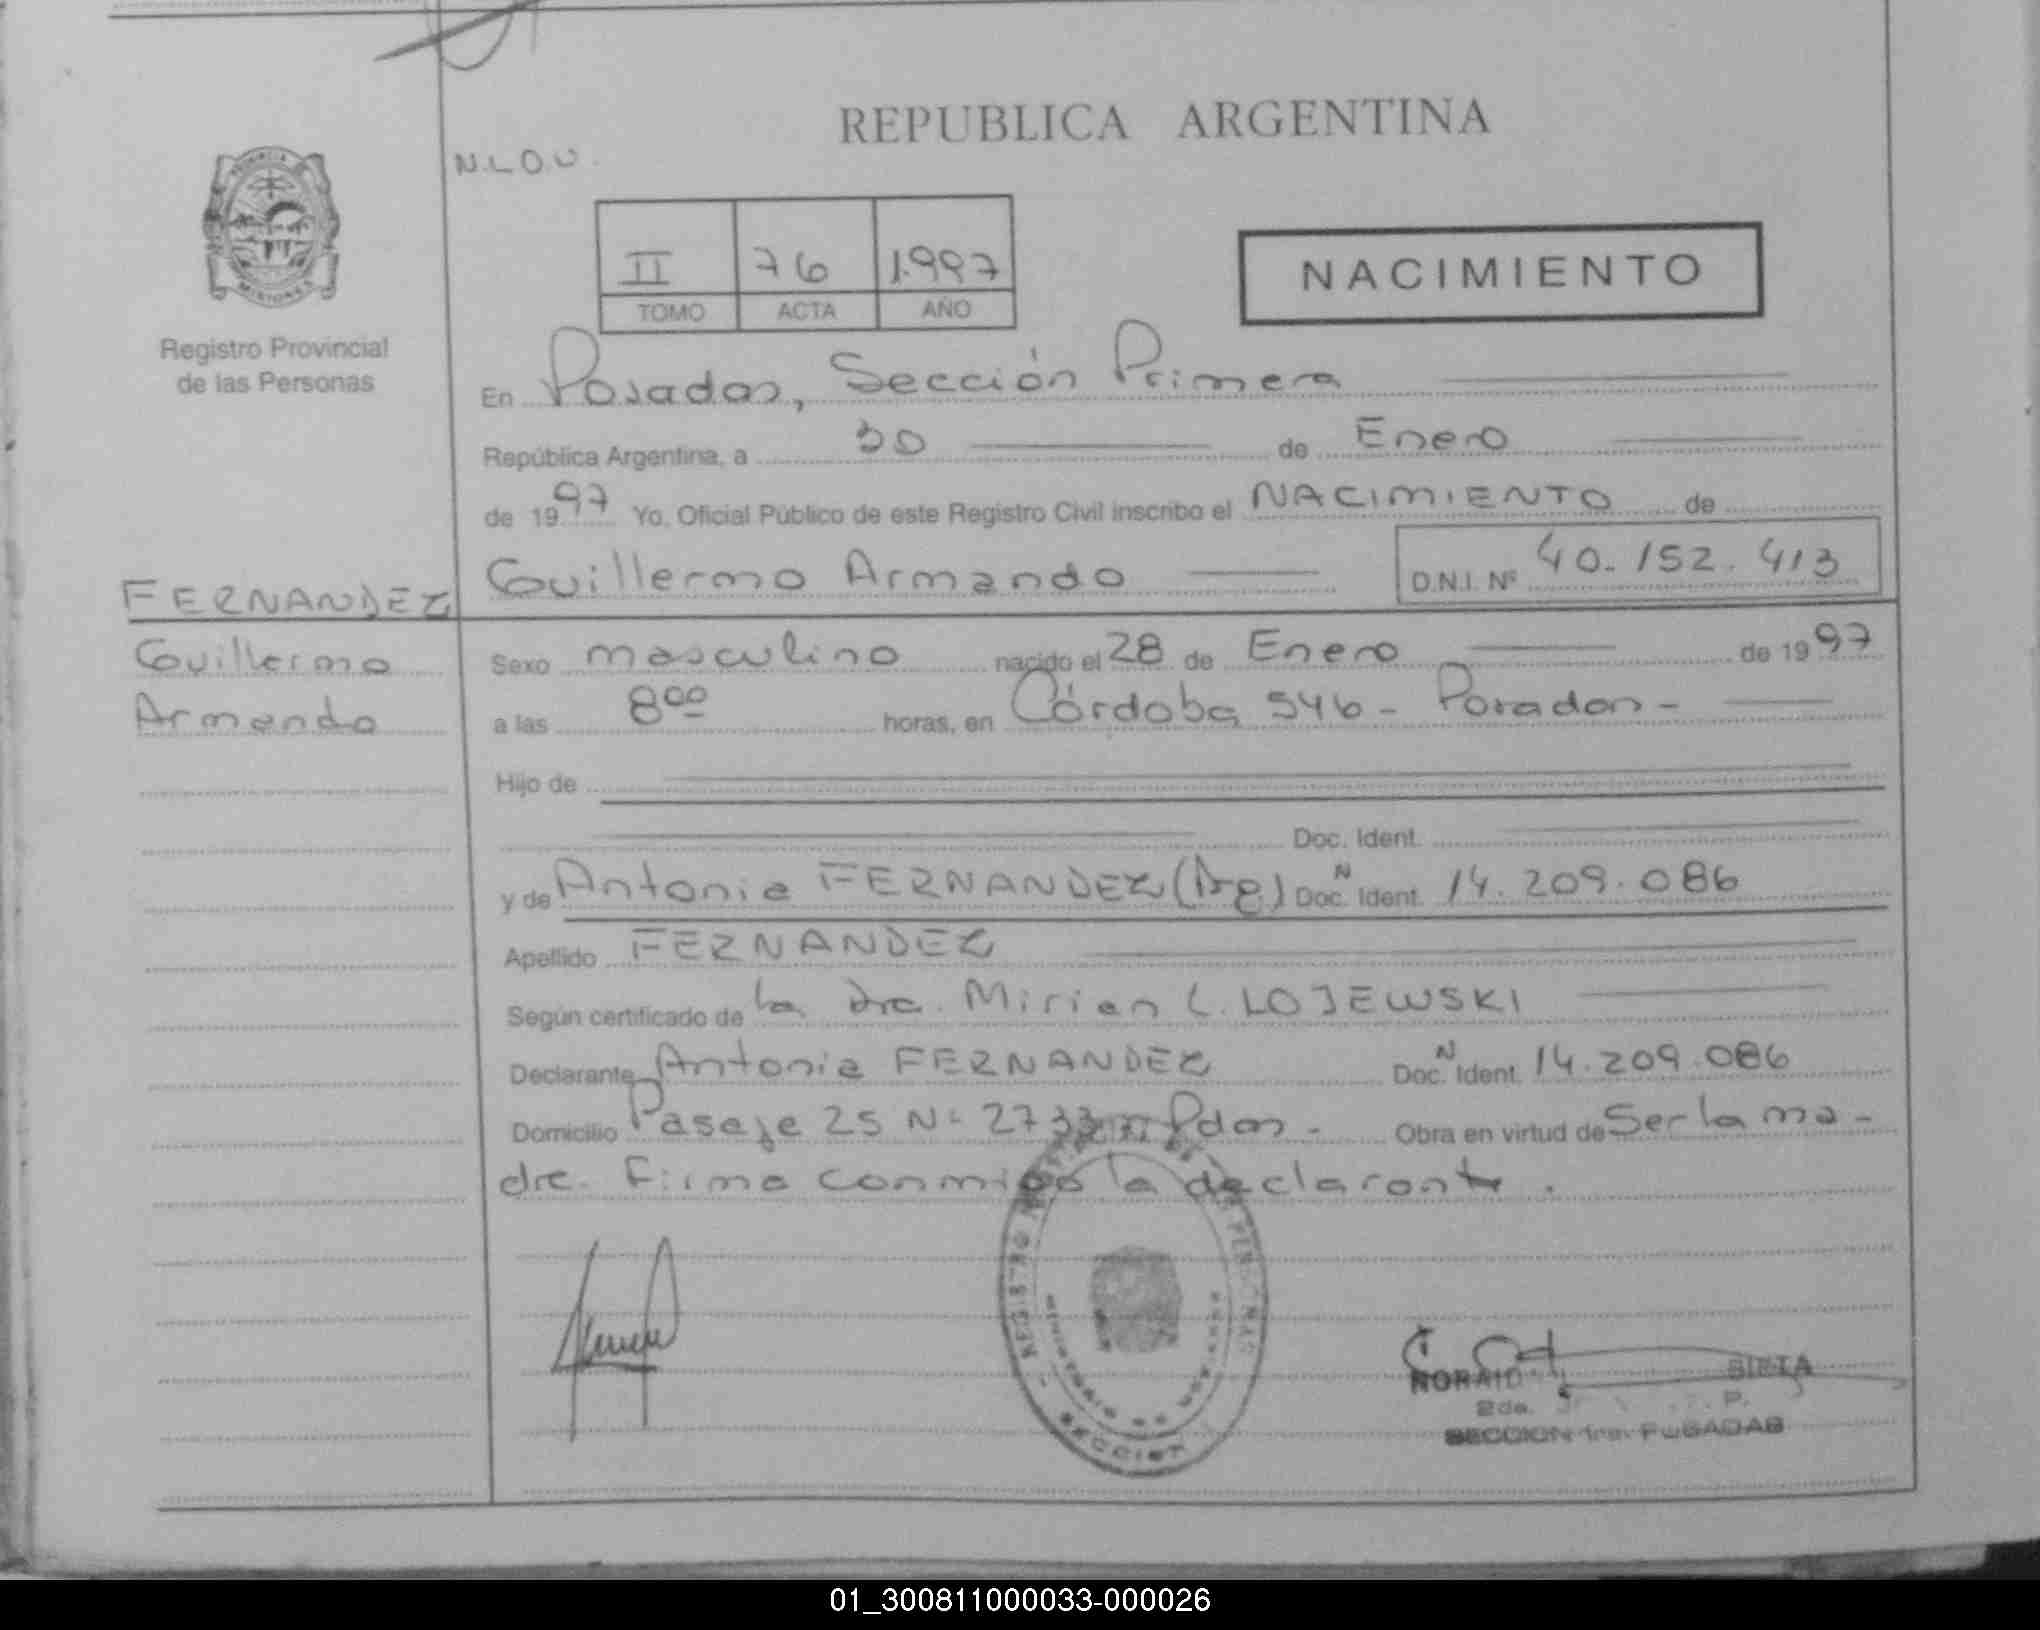 REPUBLICA ARGENTINA
N.L.O.U.
PROVINCIA
MISIONES
II 76 1.997
TOMO ACTA AÑO
NACIMIENTO
Registro Provincial
de las Personas
En Posadas, Sección Primera
República Argentina, a 30 de Enero
de 1997 Yo, Oficial Público de este Registro Civil inscribo el NACIMIENTO de
Guillermo Armando D.N.I. Nº 40.152.413
FERNANDEZ
Guillermo
Armando
Sexo masculino nacido el 28 de Enero de 1997
a las 8 00 horas, en Córdoba 546 - Posadas -
Hijo de
Doc. Ident.
y de Antonia FERNANDEZ (Arg) Doc. N Ident. 14.209.086
Apellido FERNANDEZ
Según certificado de la dra. Mirian L. LOJEWSKI
Declarante Antonia FERNANDEZ Doc. N Ident. 14.209.086
Domicilio Pasaje 25 Nº 2733 Pdas. Obra en virtud de Ser la ma-
dre. Firma conmigo la declarante.
REGISTRO
SECCION
NORAID
2da. P.
SECCION 1ra. POSADAS
01_300811000033-000026